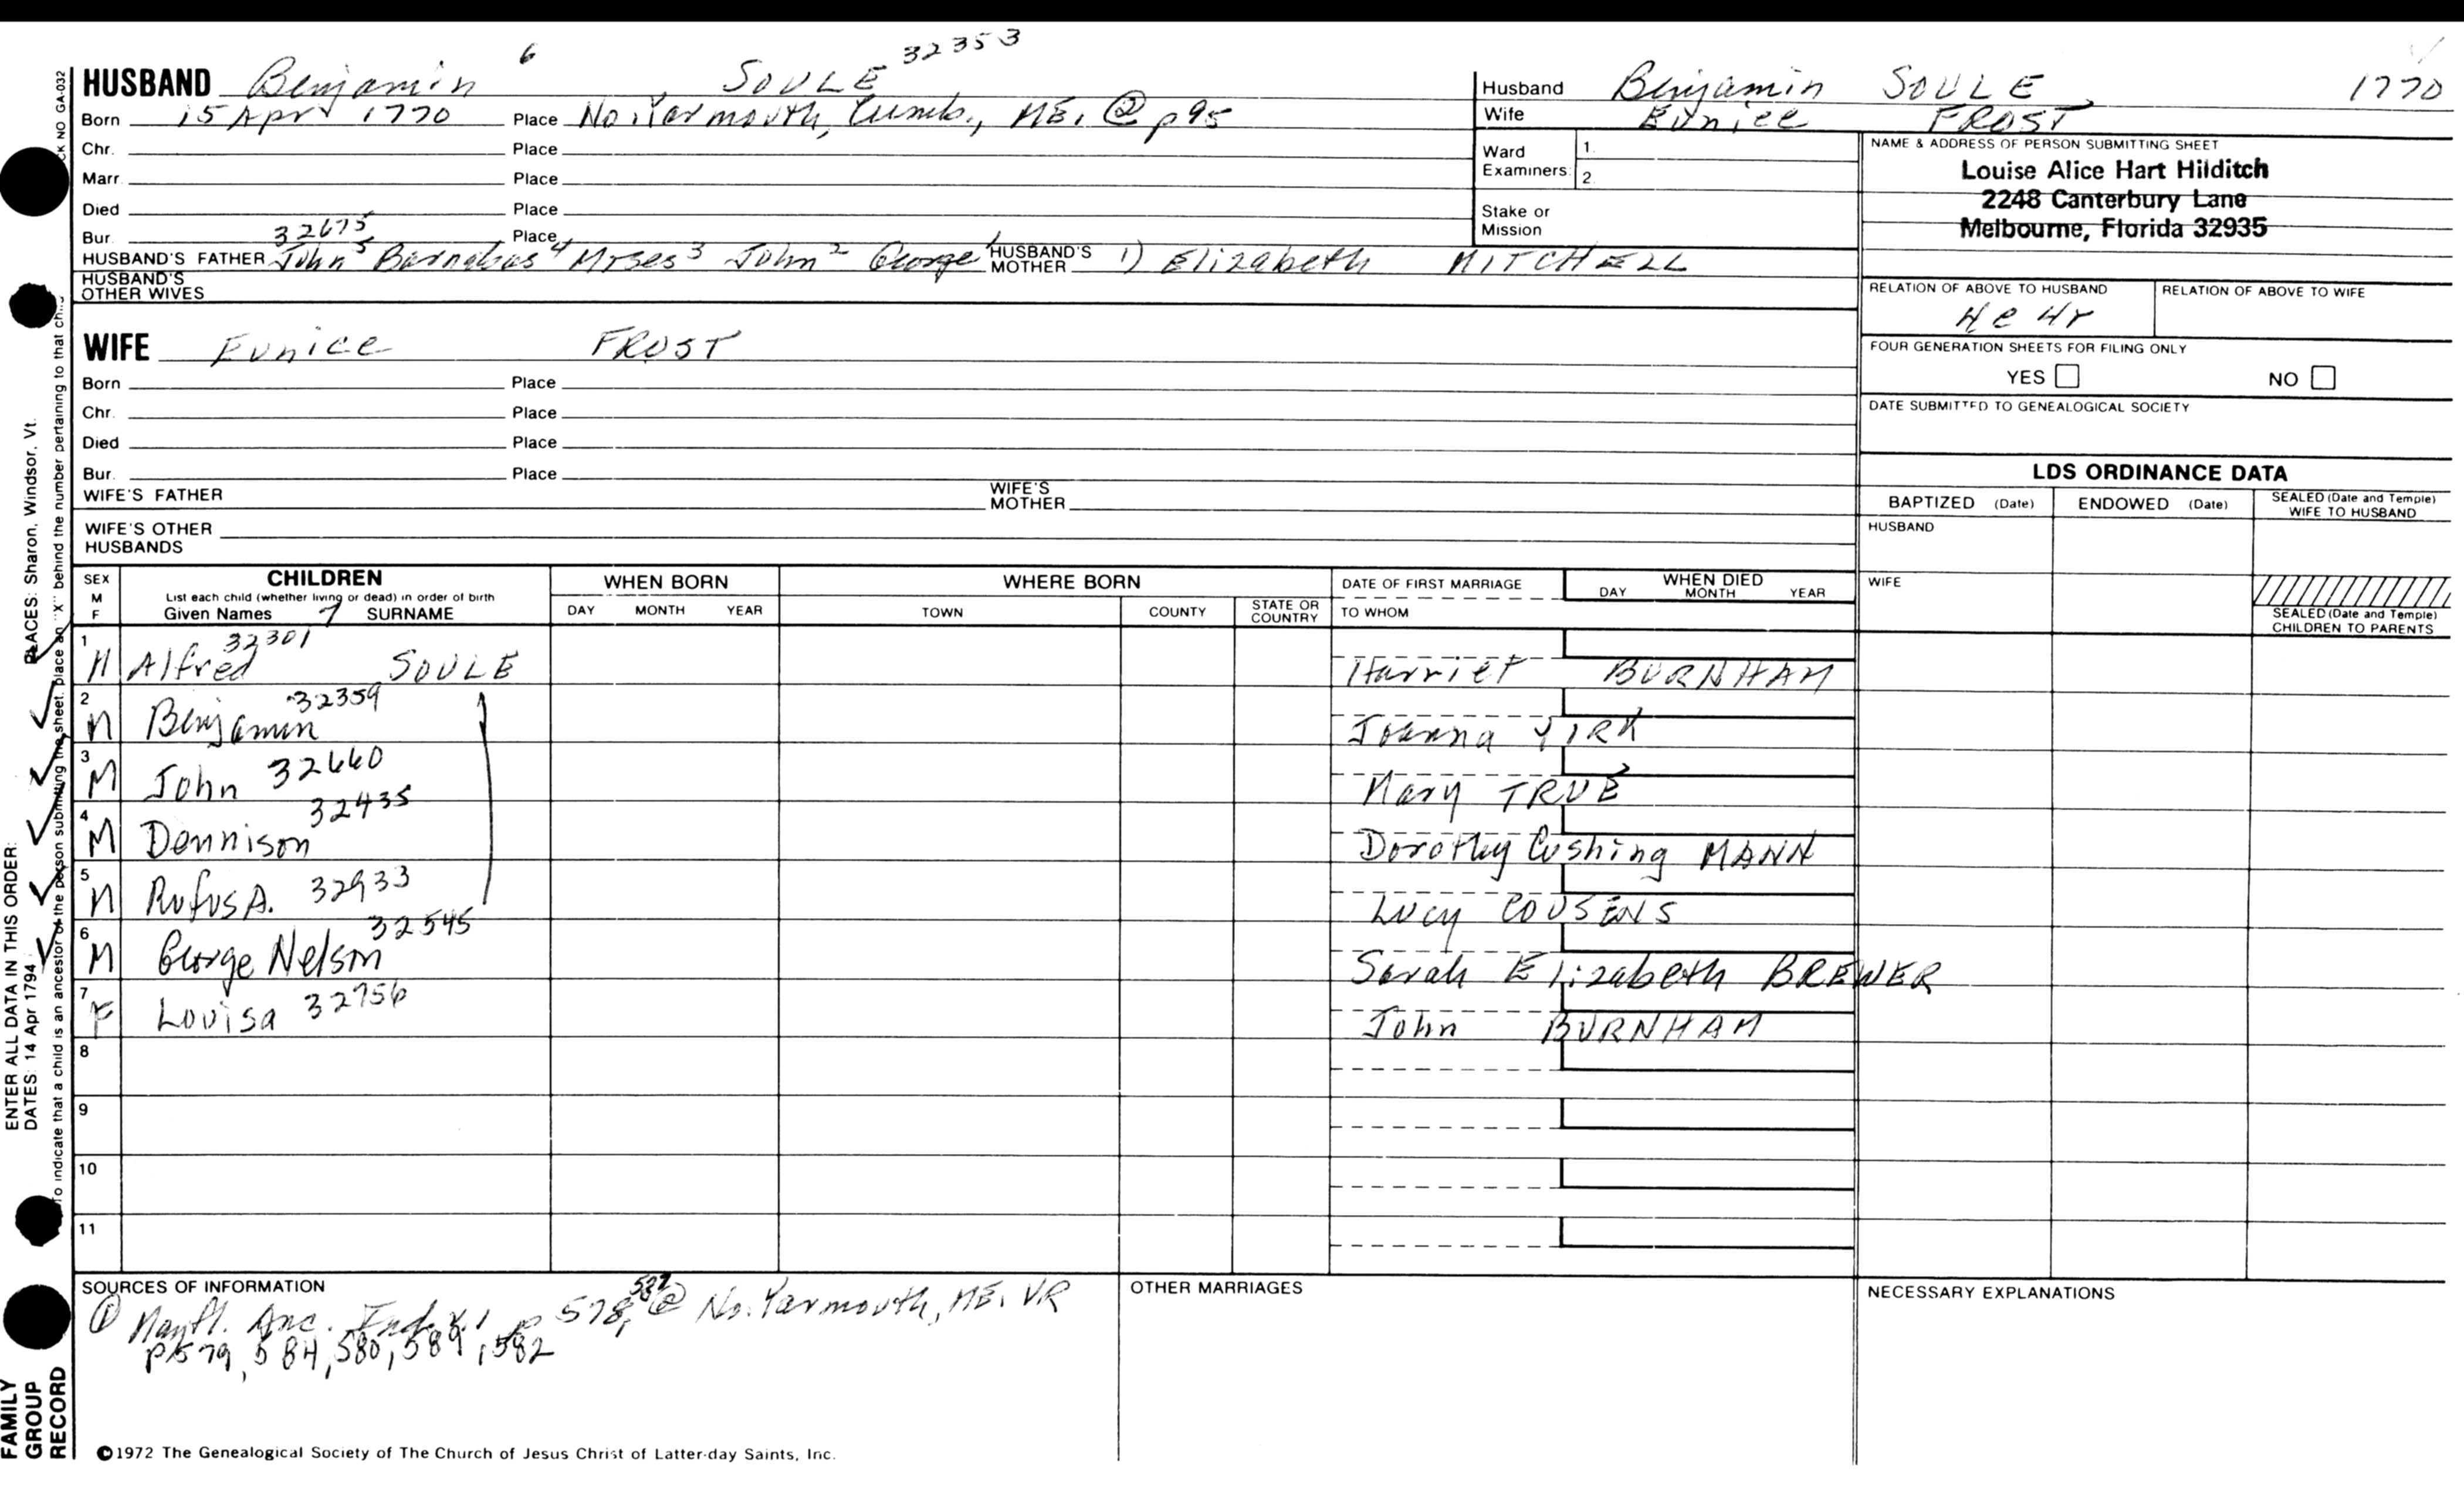 HUSBAND Benjamin 6 SOULE 32353
Born 15 Apr 1770 Place No. Yarmouth, Cumb., ME. @ p95
Chr. Place
Marr. Place
Died Place
Bur. Place
32675
HUSBAND'S FATHER John 5 Barnabas 4 Moses 3 John 2 George 1 HUSBAND'S MOTHER 1) Elizabeth MITCHELL
HUSBAND'S OTHER WIVES
WIFE Eunice FROST
Born Place
Chr. Place
Died Place
Bur. Place
WIFE'S FATHER WIFE'S MOTHER
WIFE'S OTHER HUSBANDS
Husband Benjamin SOULE 1770
Wife Eunice FROST
Ward Examiners 1. 2
Stake or Mission
NAME & ADDRESS OF PERSON SUBMITTING SHEET
Louise Alice Hart Hilditch
2248 Canterbury Lane
Melbourne, Florida 32935
RELATION OF ABOVE TO HUSBAND RELATION OF ABOVE TO WIFE
FOUR GENERATION SHEETS FOR FILING ONLY
YES NO
DATE SUBMITTED TO GENEALOGICAL SOCIETY
LDS ORDINANCE DATA
BAPTIZED (Date) ENDOWED (Date) SEALED (Date and Temple) WIFE TO HUSBAND
HUSBAND
WIFE
SEALED (Date and Temple) CHILDREN TO PARENTS
SEX M F CHILDREN WHEN BORN WHERE BORN DATE OF FIRST MARRIAGE WHEN DIED
List each child (whether living or dead) in order of birth
Given Names 7 SURNAME DAY MONTH YEAR TOWN COUNTY STATE OR COUNTRY TO WHOM DAY MONTH YEAR
1 M Alfred 32301 SOULE Harriet BURNHAM
2 M Benjamin 32359 Joanna YORK
3 M John 32660 Mary TRUE
4 M Dennison 32435 Dorothy Cushing MANN
5 M Rufus A. 32933 Lucy COUSENS
6 M George Nelson 32545 Sarah Elizabeth BREWER
7 F Louisa 32756 John BURNHAM
8
9
10
11
SOURCES OF INFORMATION
① Manfl. Anc. Ind. V.1 p 578, 582 @ No. Yarmouth, ME. VR
p 579, 584, 580, 589, 582
OTHER MARRIAGES
NECESSARY EXPLANATIONS
©1972 The Genealogical Society of The Church of Jesus Christ of Latter-day Saints, Inc.
CK NO GA-032
To indicate that a child is an ancestor of the person submitting the sheet, place an "X" behind the number pertaining to that
ENTER ALL DATA IN THIS ORDER:
DATES: 14 Apr 1794 PLACES: Sharon, Windsor, Vt.
FAMILY
GROUP
RECORD